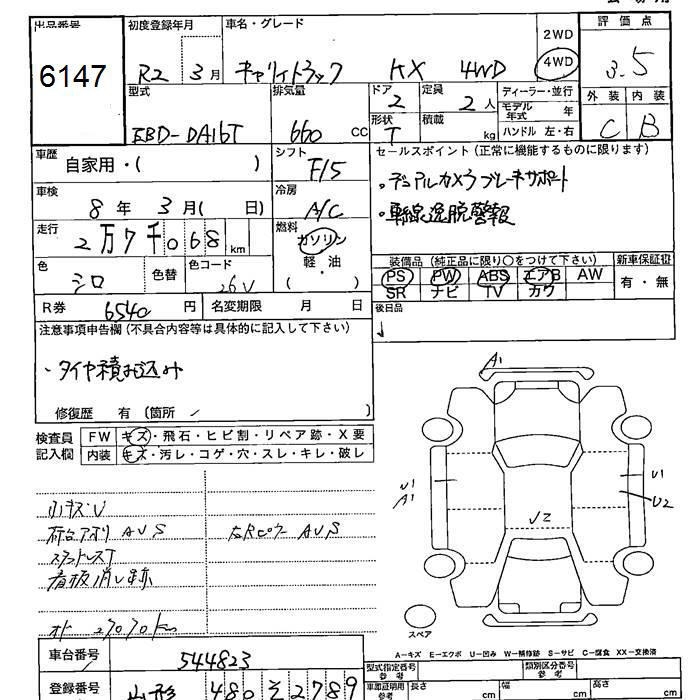 出品番号 初度登録年月 車名・グレード 2WD 評価点
6147 R2 3月 キャリイトラック KX 4WD 4WD 3.5
型式 排気量 ドア 2 定員 2人 ディーラー・並行 外装 内装
モデル年式 年
EBD-DA16T 660 CC 形状 T 積載 kg ハンドル 左・右 C B
車歴 シフト セールスポイント(正常に機能するものに限ります)
自家用・( ) F/5 ・デュアルカメラブレーキサポート
車検 冷房 ・車線逸脱警報
8年 3月( 日) A/C
走行 燃料
2万7千068km ガソリン 装備品(純正品に限り○をつけて下さい) 新車保証書
色 色替 色コード 軽・油 PS PW ABS エアB AW 有・無
シロ 26V ( ) SR ナビ TV カワ
R券 6540円 名変期限 月 日 後日品
注意事項申告欄(不具合内容等は具体的に記入して下さい)
・タイヤ積み込み
修復歴 有(箇所 )
検査員 FW キズ・飛石・ヒビ割・リペア跡・X要
記入欄 内装 キズ・汚レ・コゲ・穴・スレ・キレ・破レ
A1
U1 U1
A1 U2
√2
小キズU
荷台アオリ AUS 左右Rピラー AUS
スタットレスT
看板消し跡
オド 27070km
スペア
A−キズ E−エクボ U−凹み W−補修跡 S−サビ C−腐食 XX−交換済
車台番号 544823
型式指定番号 参考 類別区分番号 参考
登録番号 山形 480 そ 2789
車庫証明用 参考 長さ cm 幅 cm 高さ cm